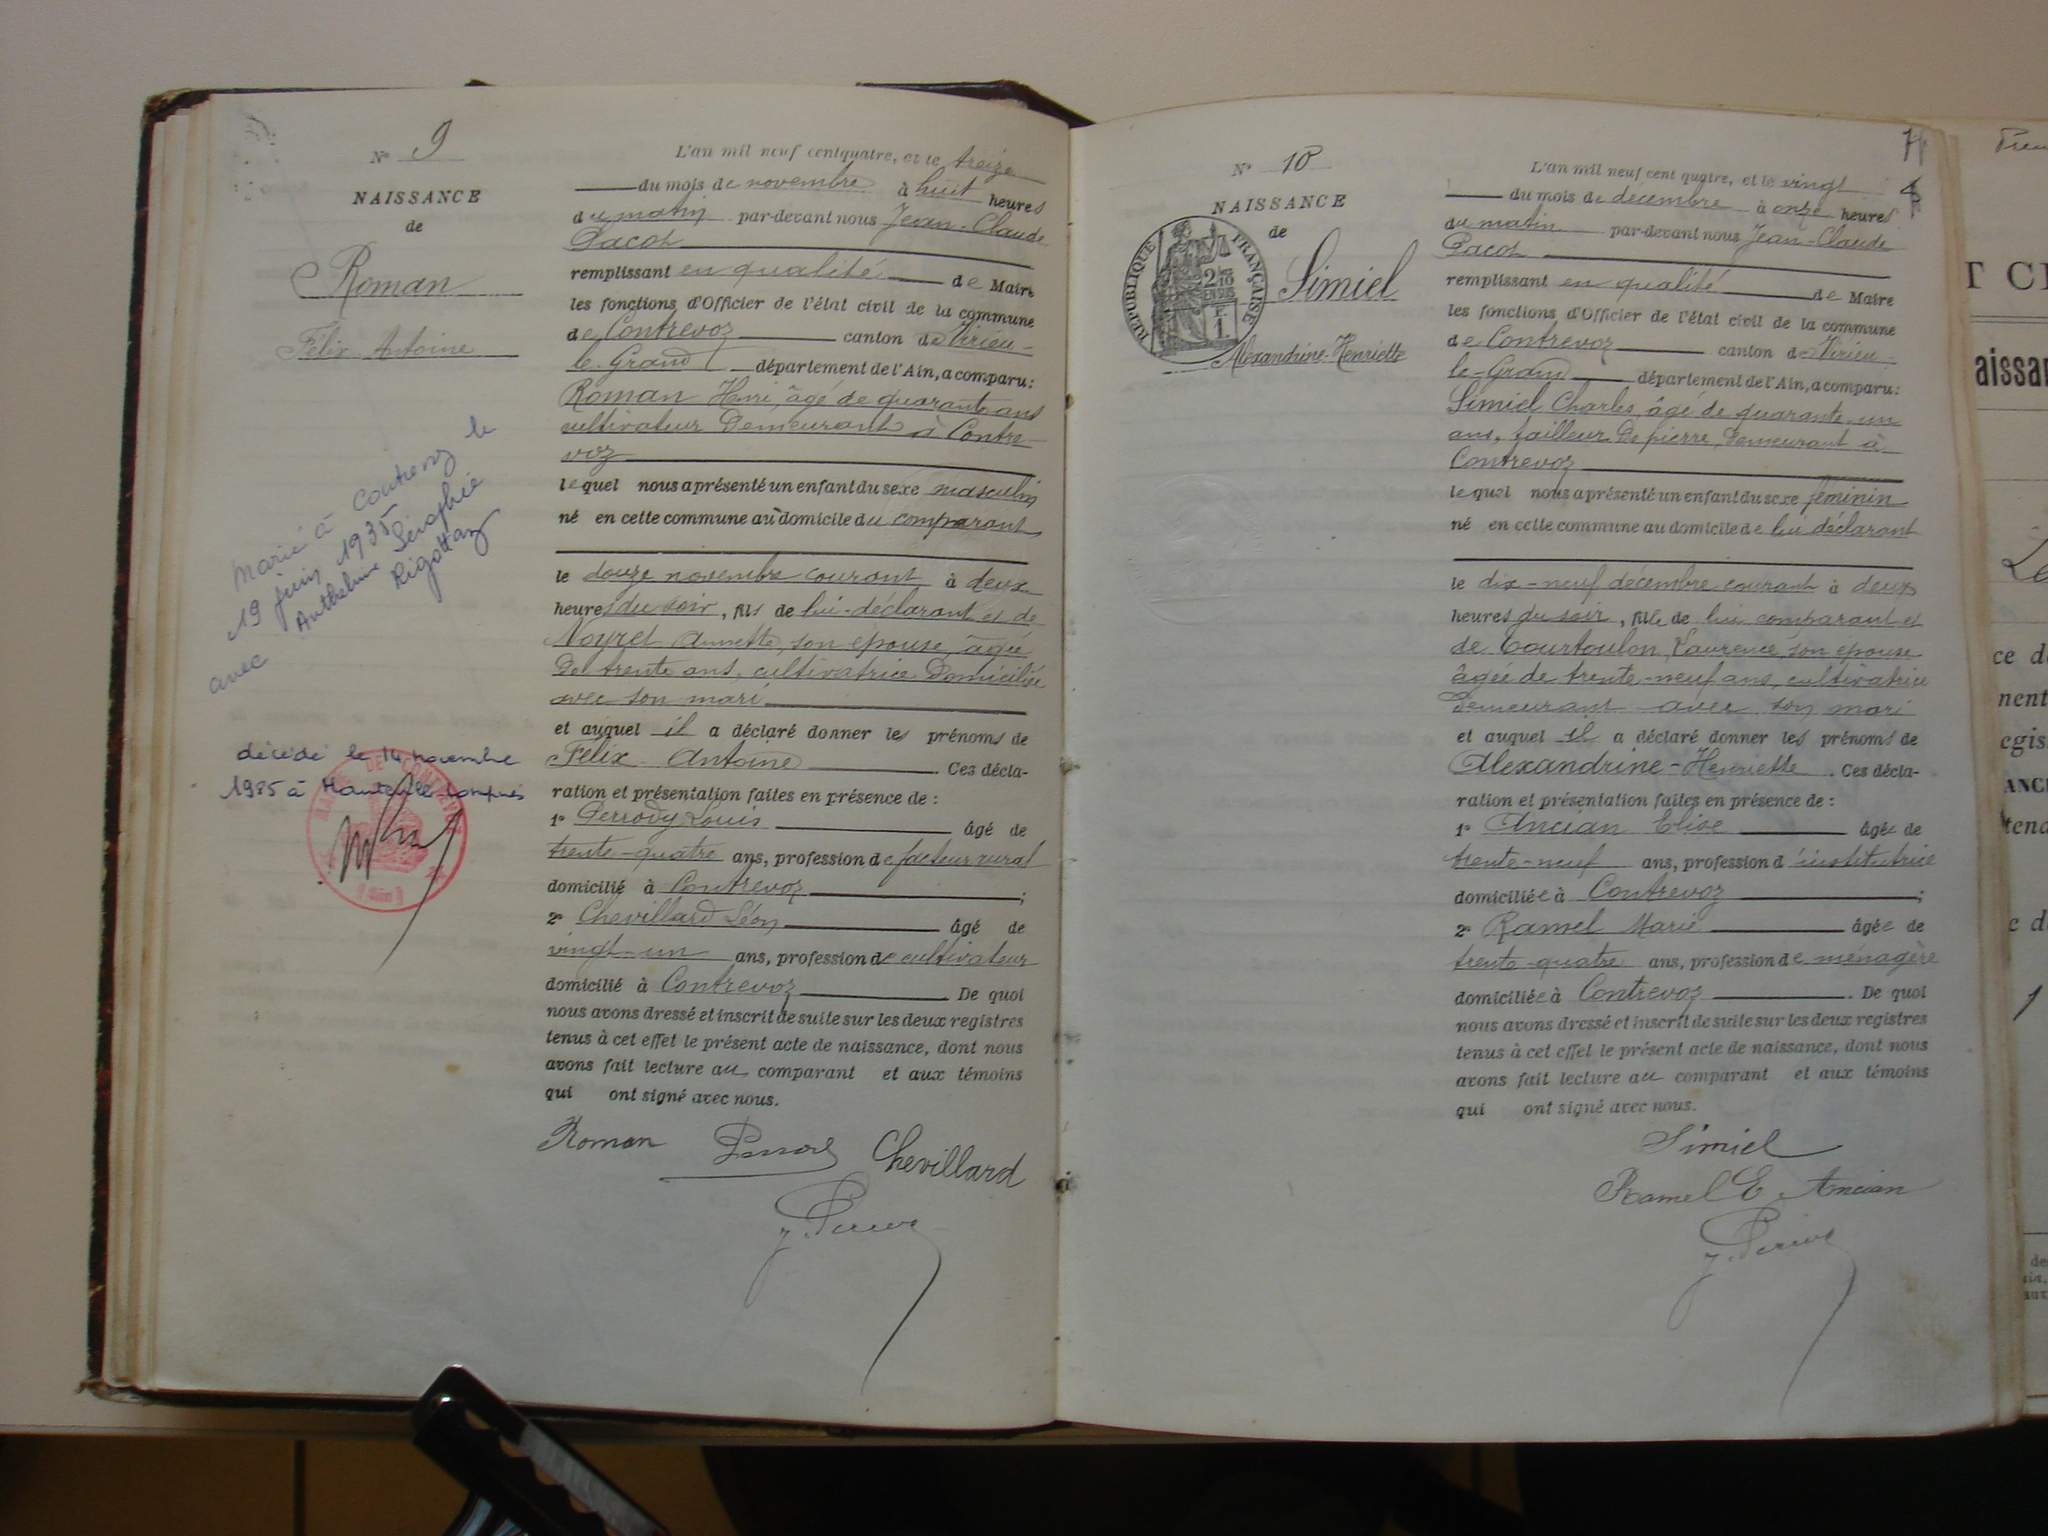 N° 9
NAISSANCE
de
Roman
Félix Antoine
marié à Contrevoz le
19 juin 1935
avec Anthelmine Séraphie
Rigottaz
décédé le 14 novembre
1985 à Hauteville-Lompnès
L'an mil neuf cent quatre, et le treize
du mois de novembre à huit heures
du matin par-devant nous Jean-Claude
Pacot
remplissant en qualité de Maire
les fonctions d'Officier de l'état civil de la commune
de Contrevoz canton de Virieu-
le-Grand département de l'Ain, a comparu:
Roman Henri, âgé de quarante ans
cultivateur demeurant à Contre-
voz
lequel nous a présenté un enfant du sexe masculin
né en cette commune au domicile du comparant
le douze novembre courant à deux
heures du soir, fils de lui-déclarant et de
Noyret Annette, son épouse, âgée
de trente ans, cultivatrice domiciliée
avec son mari
et auquel il a déclaré donner les prénoms de
Félix Antoine. Ces décla-
ration et présentation faites en présence de:
1° Perrody Louis âgé de
trente-quatre ans, profession de facteur rural
domicilié à Contrevoz;
2° Chevillard Léon âgé de
vingt-un ans, profession de cultivateur
domicilié à Contrevoz. De quoi
nous avons dressé et inscrit de suite sur les deux registres
tenus à cet effet le présent acte de naissance, dont nous
avons fait lecture au comparant et aux témoins
qui ont signé avec nous.
Roman Chevillard
N° 10
NAISSANCE
de
RÉPUBLIQUE FRANÇAISE
Simiel
Alexandrine-Henriette
L'an mil neuf cent quatre, et le vingt
du mois de décembre à onze heures
du matin par-devant nous Jean-Claude
Pacot
remplissant en qualité de Maire
les fonctions d'Officier de l'état civil de la commune
de Contrevoz canton de Virieu-
le-Grand département de l'Ain, a comparu:
Simiel Charles, âgé de quarante-un
ans, tailleur de pierre, demeurant à
Contrevoz
lequel nous a présenté un enfant du sexe féminin
né en cette commune au domicile de lui déclarant
le dix-neuf décembre courant à deux
heures du soir, fille de lui comparant et
de Courtoulon Laurence, son épouse
âgée de trente-neuf ans, cultivatrice
demeurant avec son mari
et auquel il a déclaré donner les prénoms de
Alexandrine-Henriette. Ces décla-
ration et présentation faites en présence de:
1° Ancian Elise âgée de
trente-neuf ans, profession d'institutrice
domiciliée à Contrevoz;
2° Ramel Marie âgée de
trente-quatre ans, profession de ménagère
domiciliée à Contrevoz. De quoi
nous avons dressé et inscrit de suite sur les deux registres
tenus à cet effet le présent acte de naissance, dont nous
avons fait lecture au comparant et aux témoins
qui ont signé avec nous.
Simiel
Ramel E. Ancian